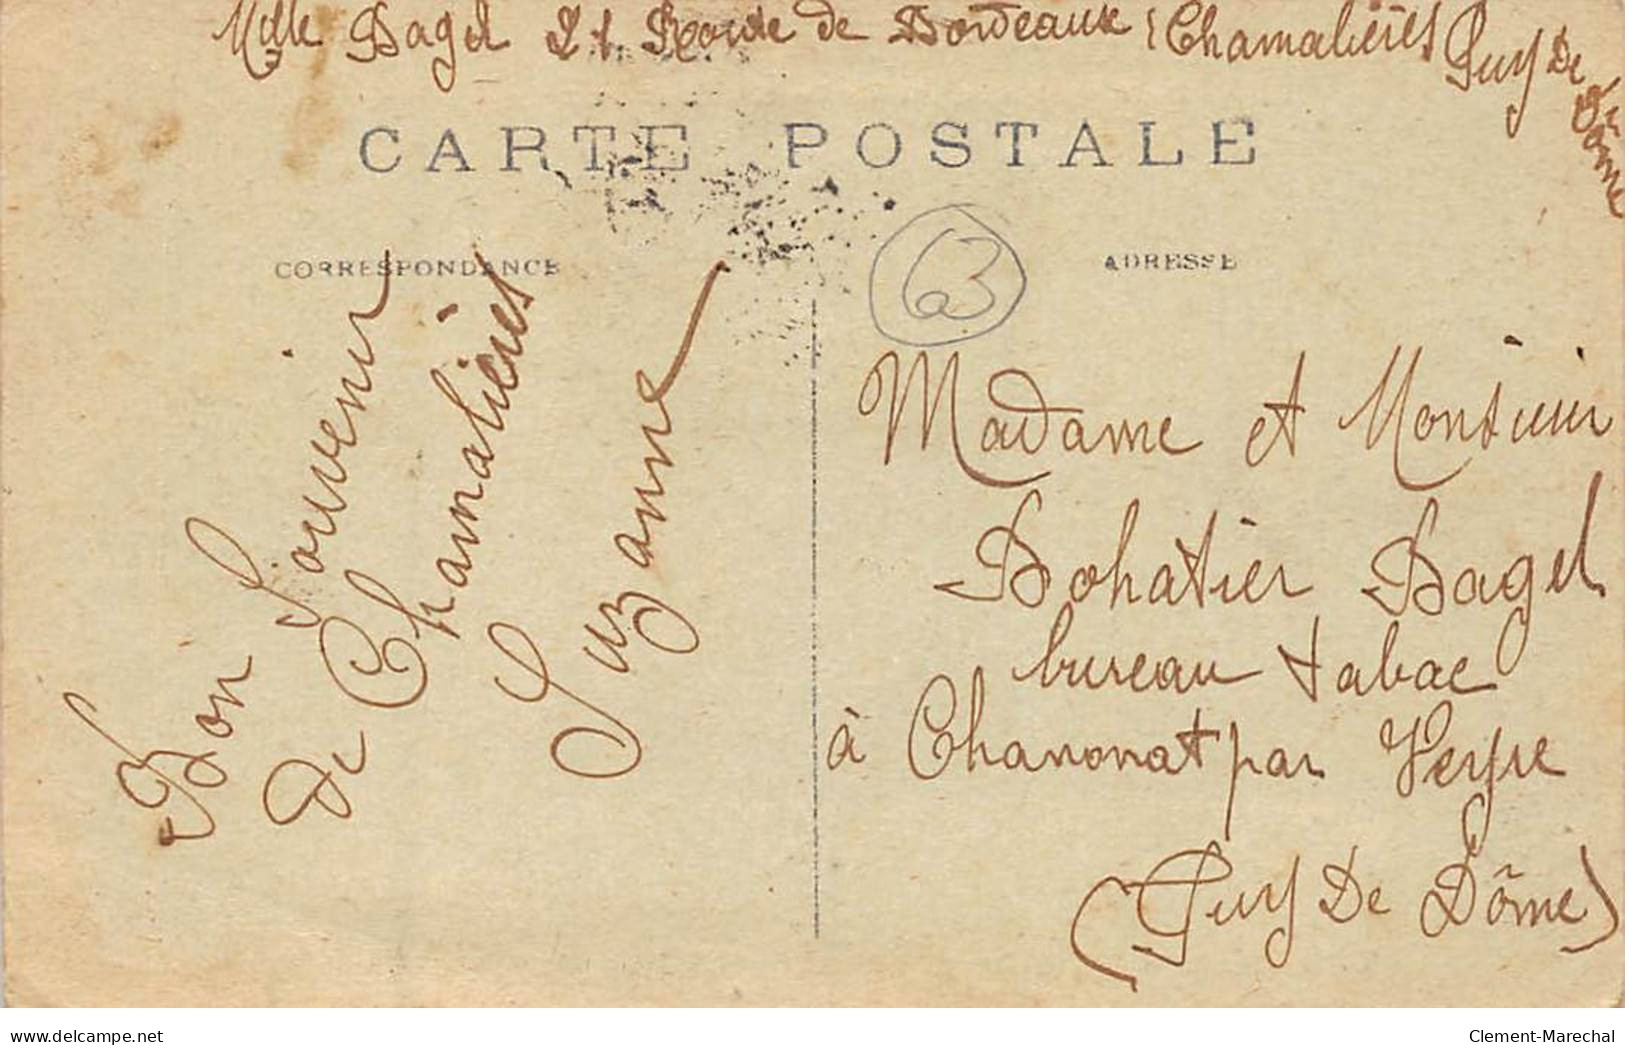 Mlle Dagel 21 Route de Bordeaux (Chamalières Puy De Dôme
CARTE POSTALE
CORRESPONDANCE
ADRESSE
63
Bon Souvenir
De Chamalières
Suzanne
Madame et Monsieur
Bohatier Dagel
bureau tabac
à Chanonat par Veyre
(Puy De Dôme)
delcampe.net
Clement-Marechal